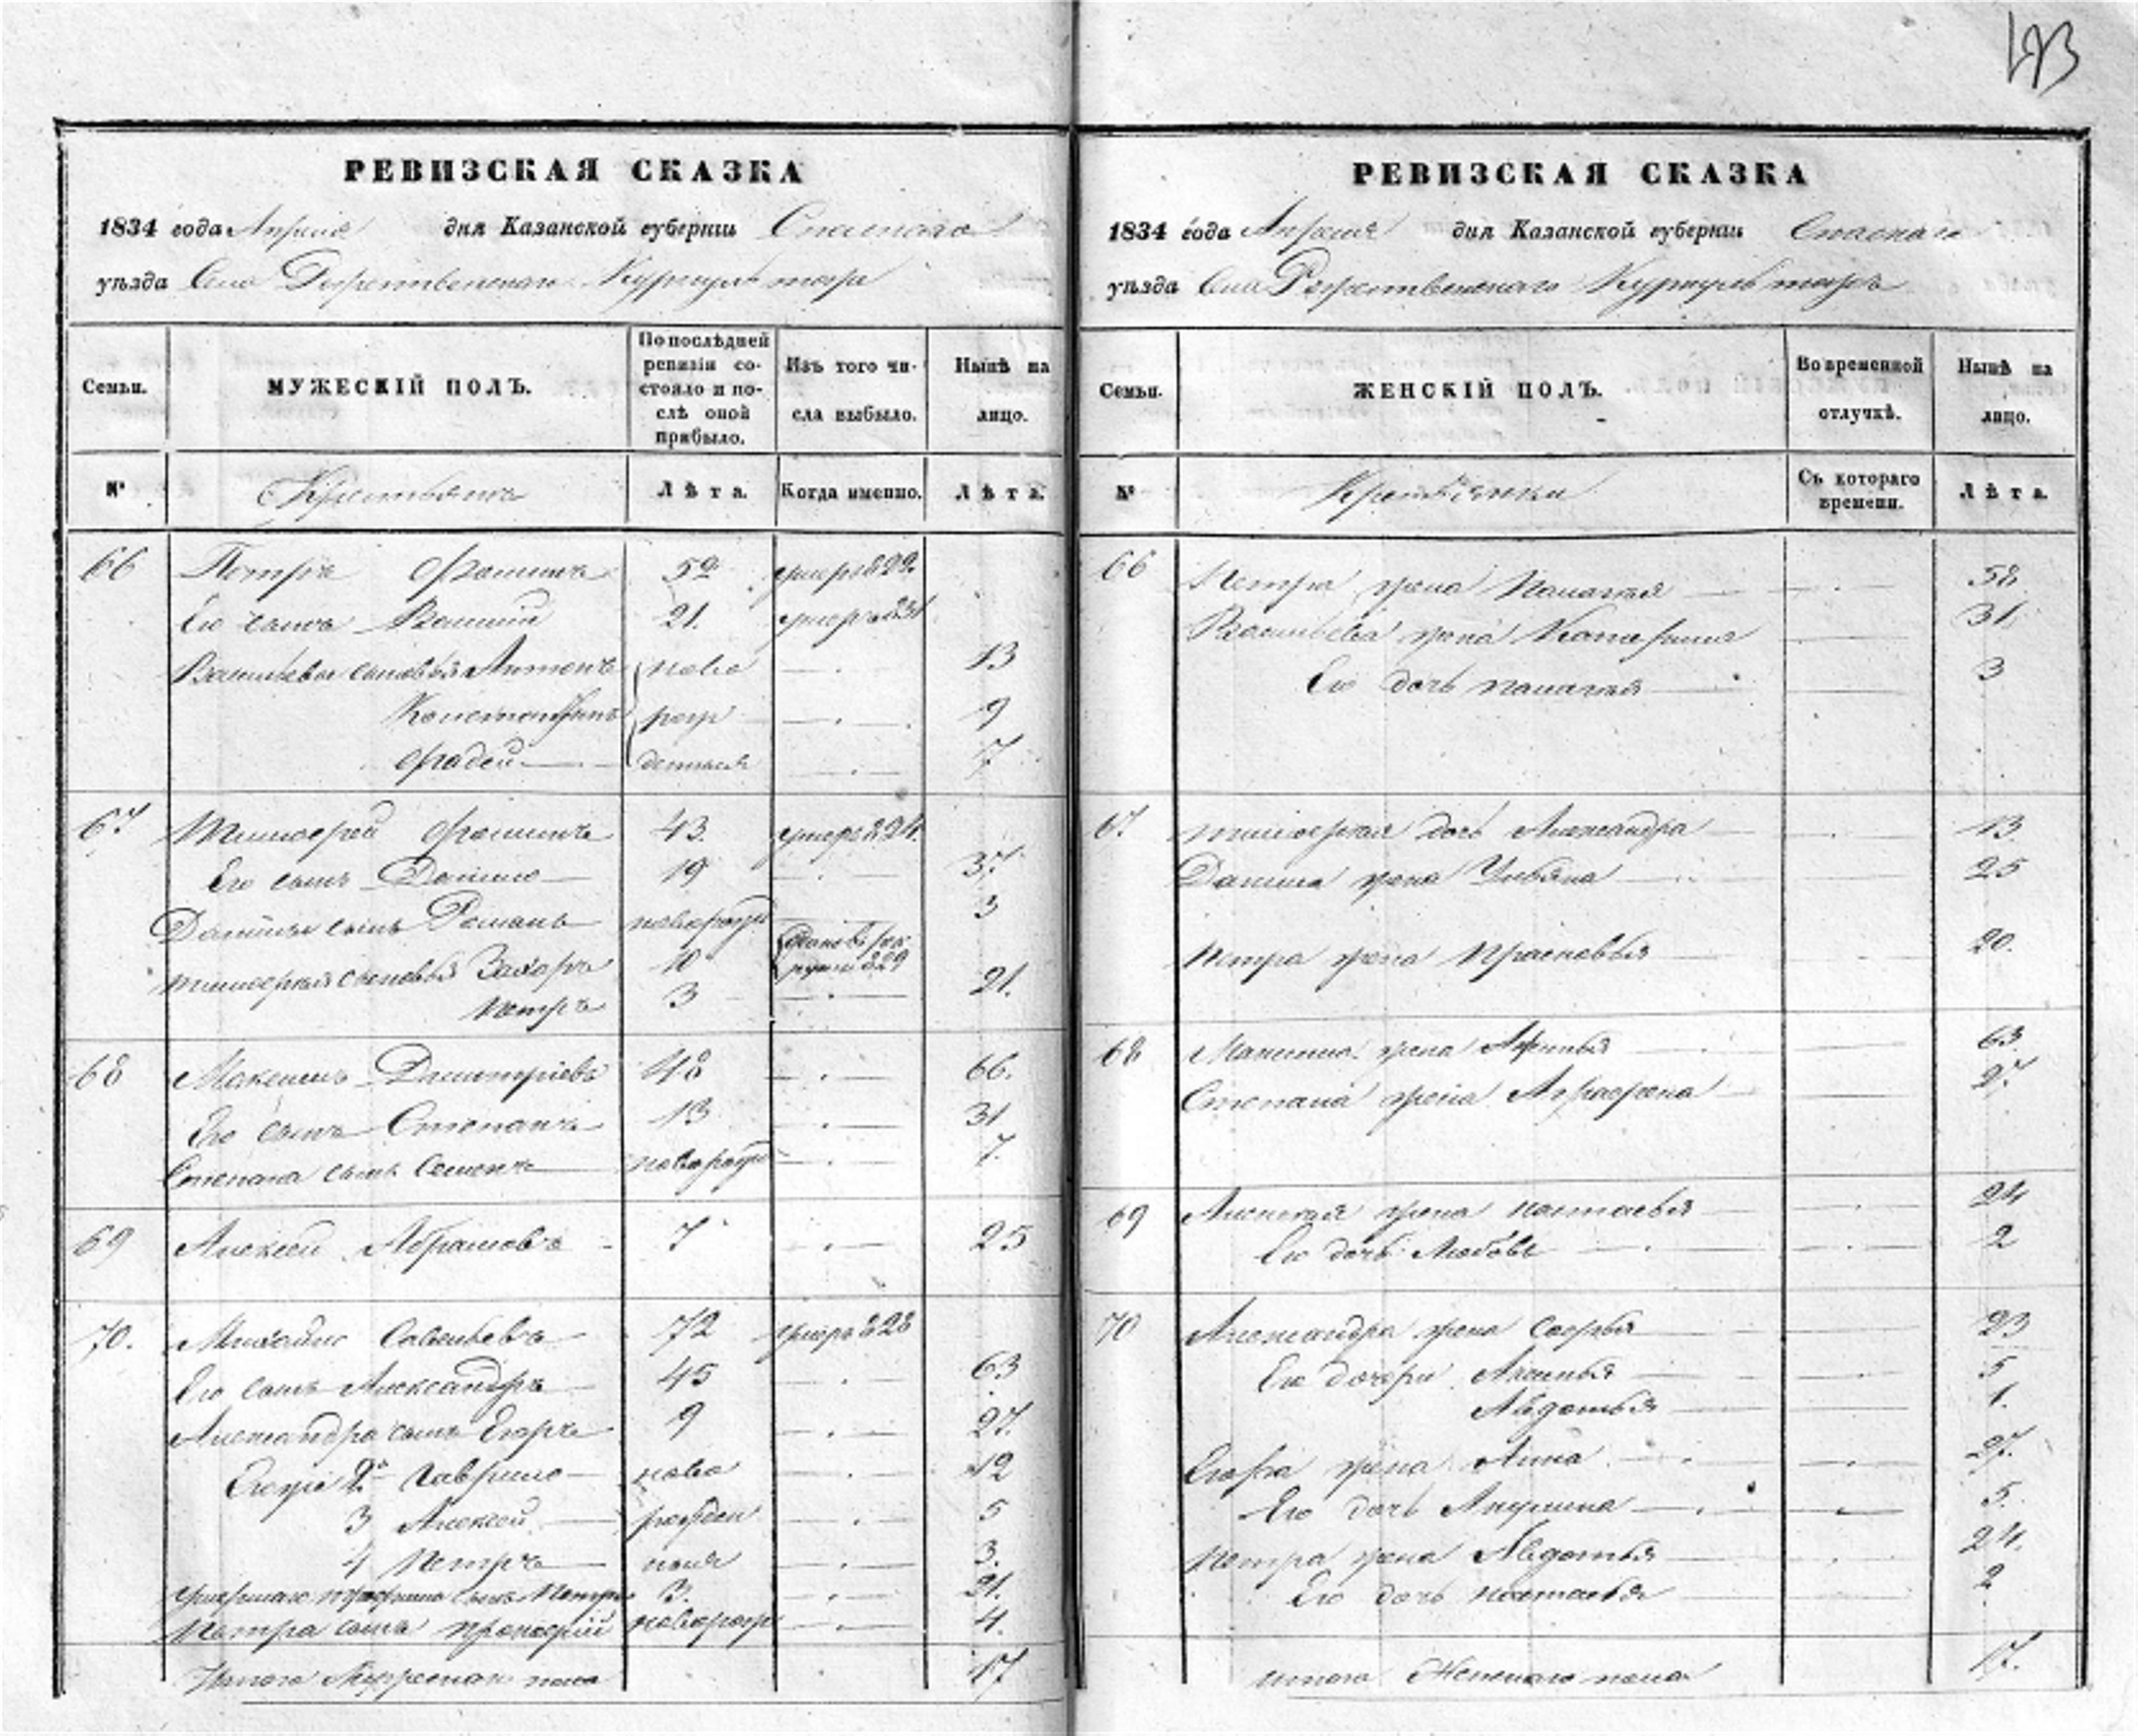 193
РЕВИЗСКАЯ СКАЗКА
1834 года Апреля дня Казанской губернии Спаскаго
уѣзда Села Рожественскаго Куркуль тожъ
Семьи.
МУЖЕСКІЙ ПОЛЪ.
По послѣдней ревизіи состояло и послѣ оной прибыло.
Изъ того числа выбыло.
Нынѣ на лицо.
№
Крестьянъ
Лѣта.
Когда именно.
Лѣта.
66 Петръ Фоминъ 52 умеръ 829.
Его сынъ Василий 21. умеръ 831
Васильевы сыновья Антонъ ново 13
Константинъ рож 9
Фадей денныя 7
67 Тимофей Фоминъ 43. умеръ 824.
Его сынъ Данило 19 37.
Данилы сынъ Романъ новорож 3
Тимофея сыновья Захаръ 10 829
Петръ 3 21.
68 Максимъ Дмитріевъ 48 66.
Его сынъ Степанъ 13 31
Степана сынъ Семенъ новорож 7.
69 Алексей Абрамовъ 7 25
70. Михайло Савельевъ 72 умеръ 828
Его сынъ Александръ 45 63
Александра сынъ Егоръ 9 27.
2й Гаврило ново 12
3 Алексей рожден 5
4 Петръ ныя 3.
сынъ Петръ 3. 21.
Петра сынъ Прокофій новорож 4.
Итого Мужескаго пола 17
РЕВИЗСКАЯ СКАЗКА
1834 года Апреля дня Казанской губерніи Спаскаго
уѣзда Села Рожественскаго Куркуль тожъ
Семьи.
ЖЕНСКІЙ ПОЛЪ.
Во временной отлучкѣ.
Нынѣ на лицо.
№
Крестьянки
Съ котораго времени.
Лѣта.
66 Петра жена Палагея 58.
Васильева жена Катерина 31.
Его дочь Палагея 3
67. Тимофея дочь Александра 13.
Данила жена Ульяна 25
Петра жена Прасковья 20.
68 Максима жена 63.
Степана жена Аграфена 27.
69 Алексея жена Настасья 24
Его дочь Любовь 2
70 Александра жена Софья 23
Его дочери Аксинья 5
Авдотья 1.
Егора жена Анна 27.
Его дочь Акулина 5.
Петра жена Авдотья 24.
Его дочь Настасья 2
Итого Женскаго пола 17.